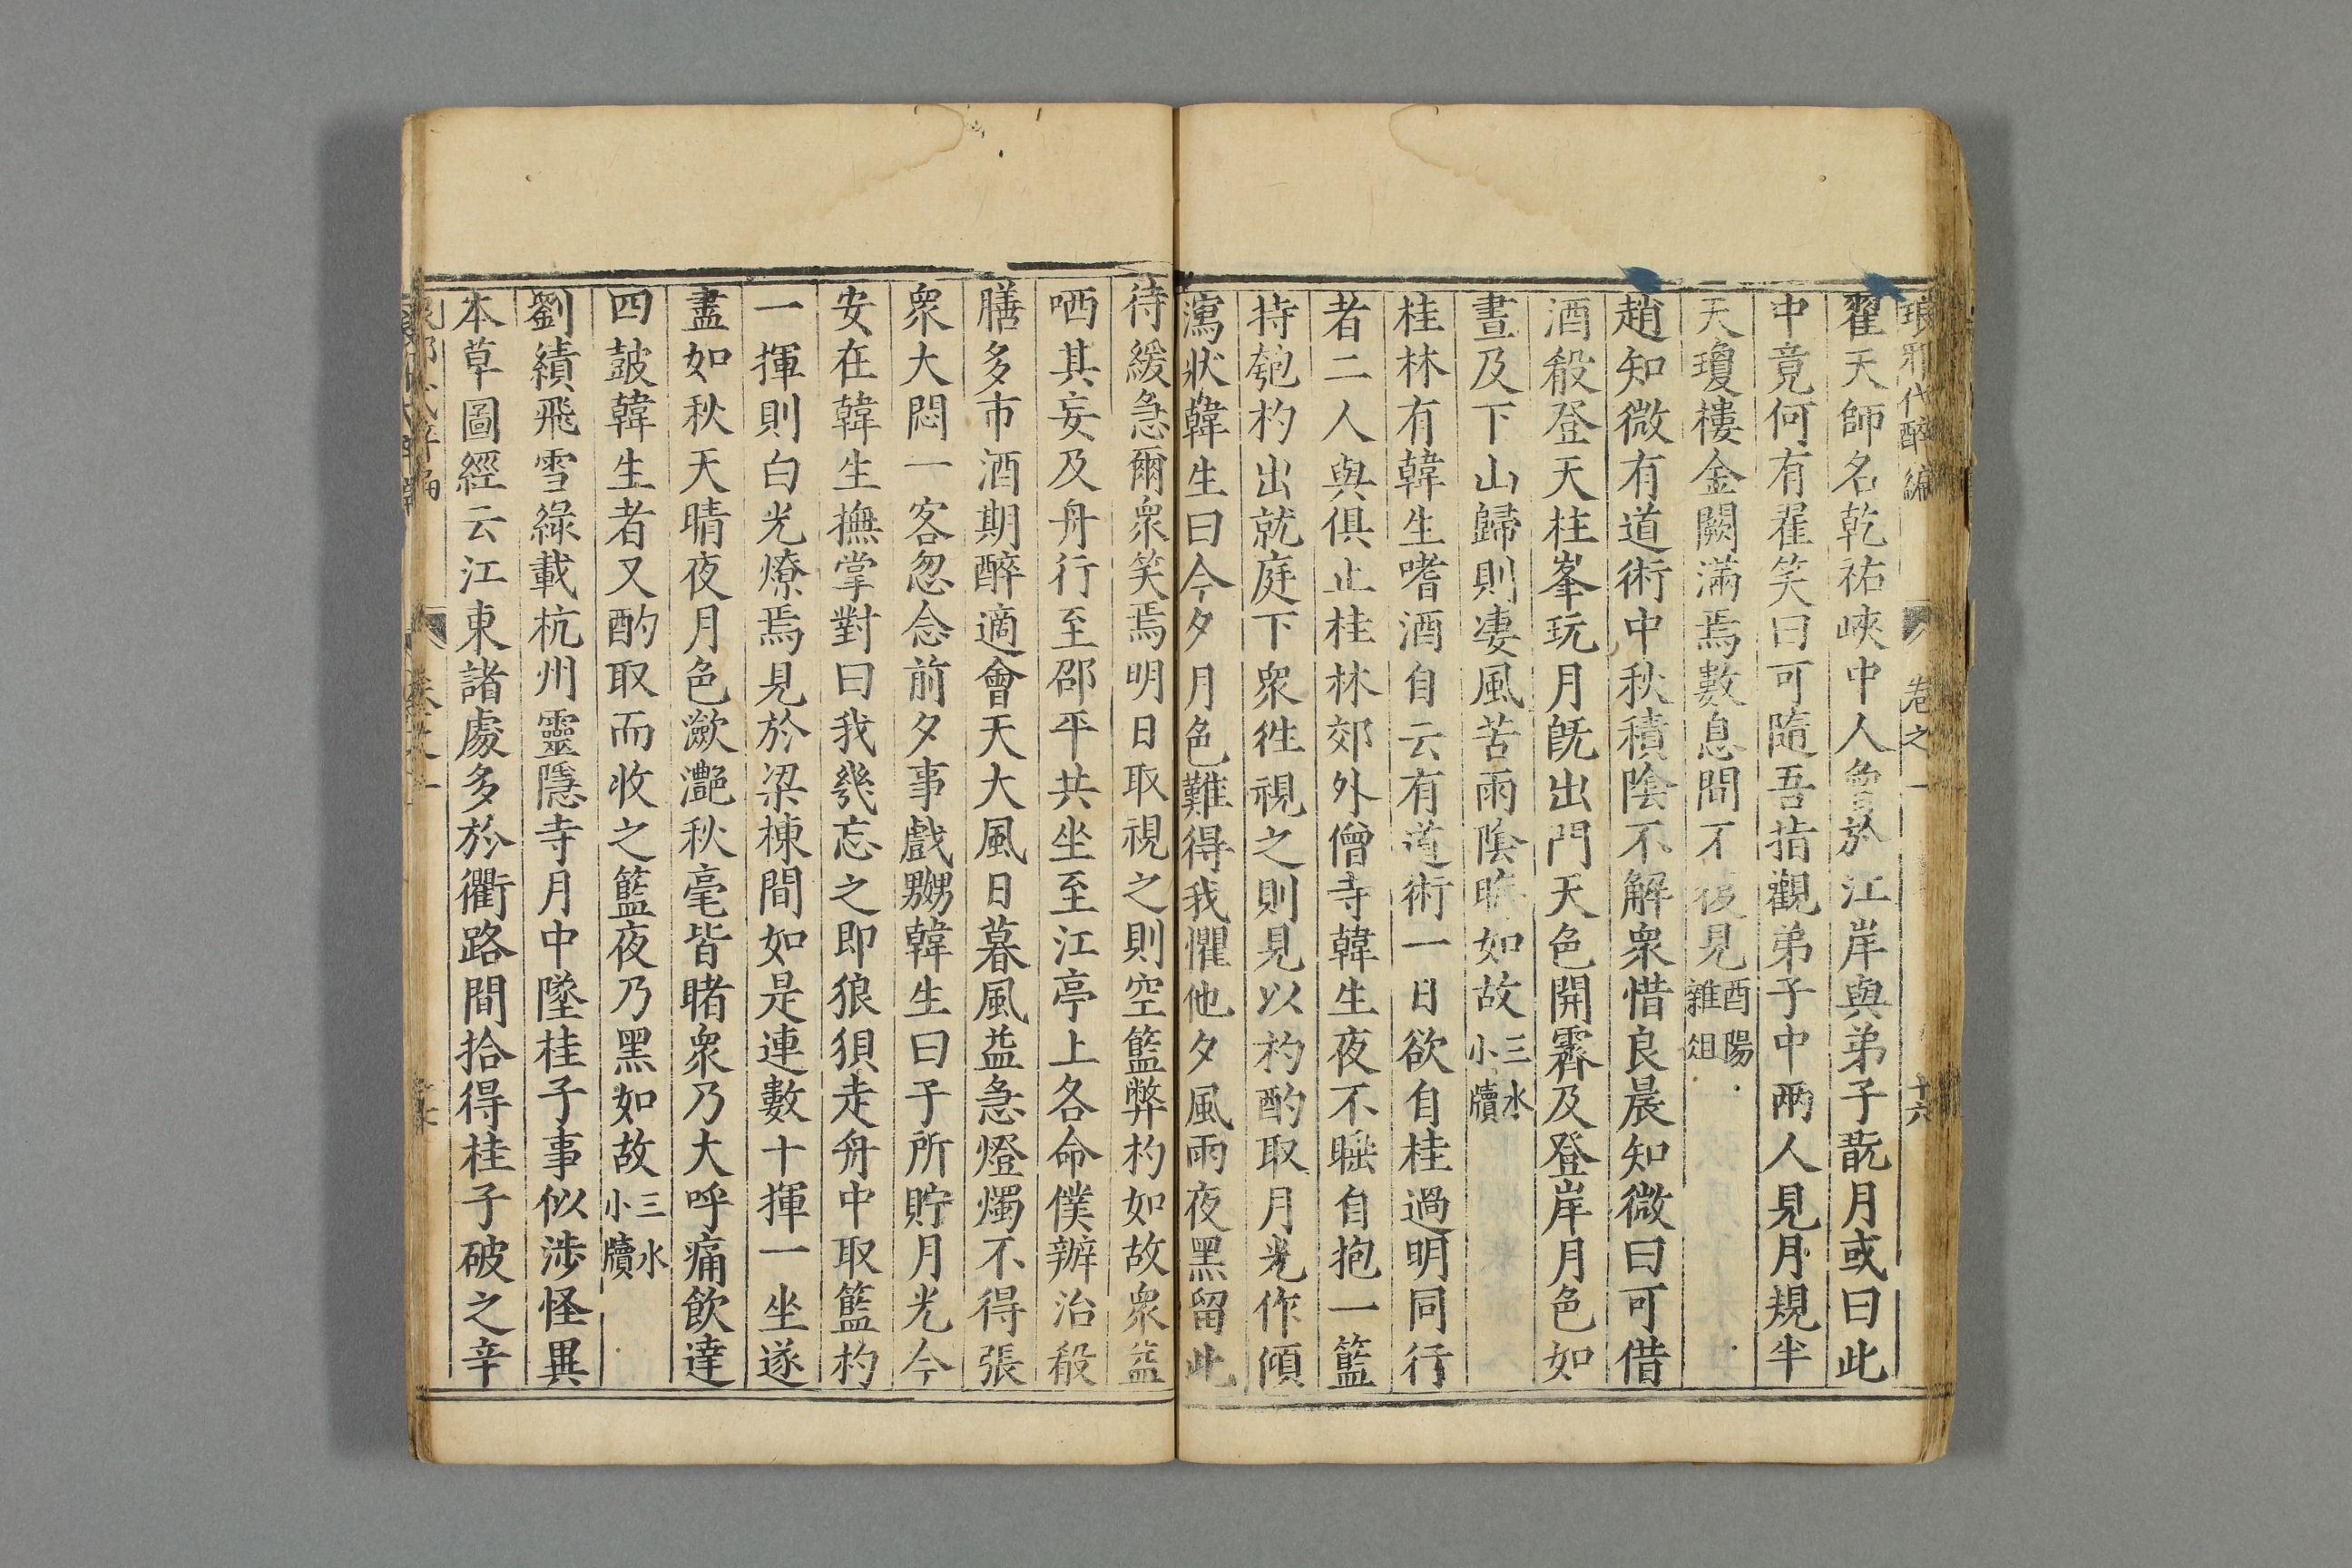 琅邪代醉編 卷之一 十六
翟天師名乾祐峽中人曾於江岸與弟子翫月或曰此
中竟何有翟笑曰可隨吾指觀弟子中兩人見月規半
天瓊樓金闕滿焉數息間不復見酉陽雜俎
趙知微有道術中秋積陰不解衆惜良晨知微曰可借
酒殽登天柱峯玩月旣出門天色開霽及登岸月色如
晝及下山歸則凄風苦雨陰晦如故三水小牘
桂林有韓生嗜酒自云有道術一日欲自桂過明同行
者二人與俱止桂林郊外僧寺韓生夜不睡自抱一籃
持匏杓出就庭下衆徃視之則見以杓酌取月光作傾
瀉狀韓生曰今夕月色難得我懼他夕風雨夜黑留此
待緩急爾衆笑焉明日取視之則空籃弊杓如故衆益
哂其妄及舟行至邵平共坐至江亭上各命僕辦治殽
膳多市酒期醉適會天大風日暮風益急燈燭不得張
衆大悶一客忽念前夕事戲嬲韓生曰子所貯月光今
安在韓生撫掌對曰我幾忘之即狼狽走舟中取籃杓
一揮則白光燎焉見於梁棟間如是連數十揮一坐遂
盡如秋天晴夜月色瀲灧秋毫皆睹衆乃大呼痛飲達
四鼓韓生者又酌取而收之籃夜乃黑如故三水小牘
劉績飛雪綠載杭州靈隱寺月中墜桂子事似涉怪異
本草圖經云江東諸處多於衢路間拾得桂子破之辛